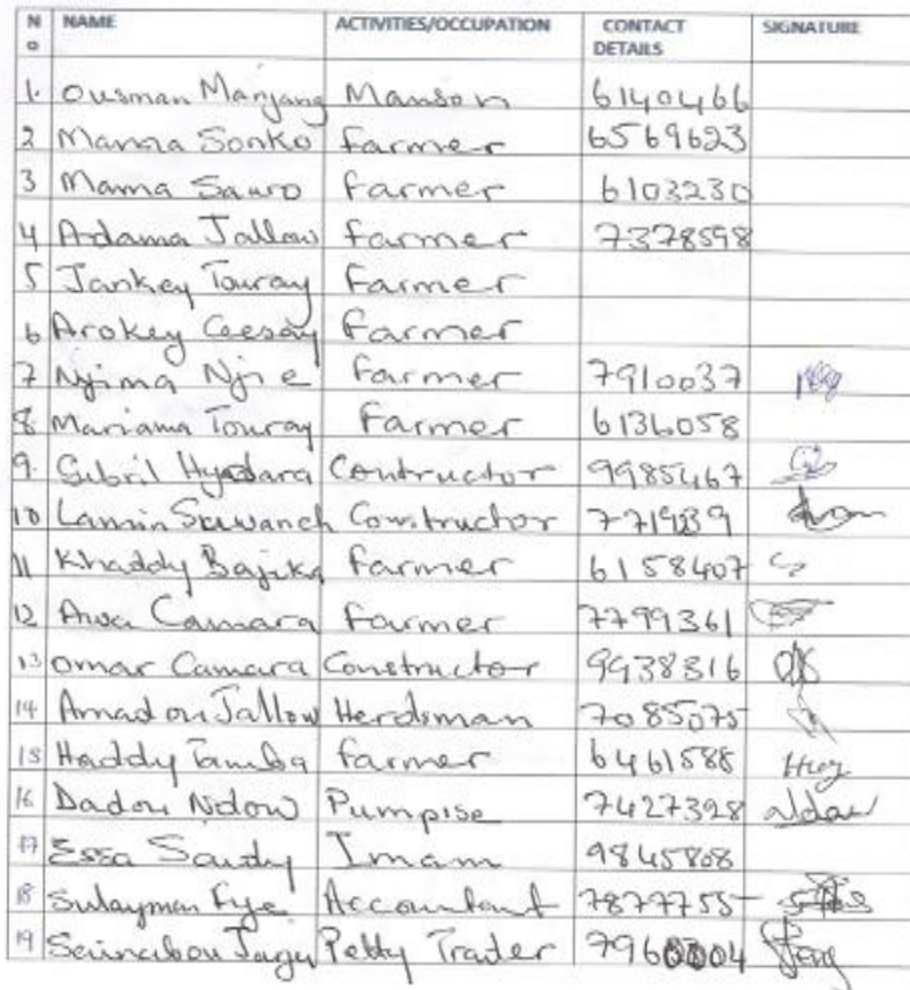 No NAME ACTIVITIES/OCCUPATION CONTACT DETAILS SIGNATURE
1. Ousman Manjang Manson 6140466
2 Mama Sonko farmer 6569623
3 Mama Sawo farmer 6103230
4 Adama Jallow farmer 7378598
5 Jankey Touray Farmer
6 Arokey Ceesay Farmer
7 Njima Njie farmer 7910037
8. Mariama Touray Farmer 6136058
9. Gibril Hydara Contructor 9985467
10 Lamin Suwaneh Contructor
11 Khaddy Bajika farmer 6158407
12 Awa Camara farmer 7799361
13 Omar Camara Constructor 9938316
14 Amadou Jallow Herdsman 7085075
15 Haddy Tamba farmer 6461588
16 Dadou Ndow Pumpise 7427328 Ndow
17 Essa Saudy Imam 9845808
18 Sulayman Fye Accountant 7877755
19 Sainabou Jagu Petty Trader